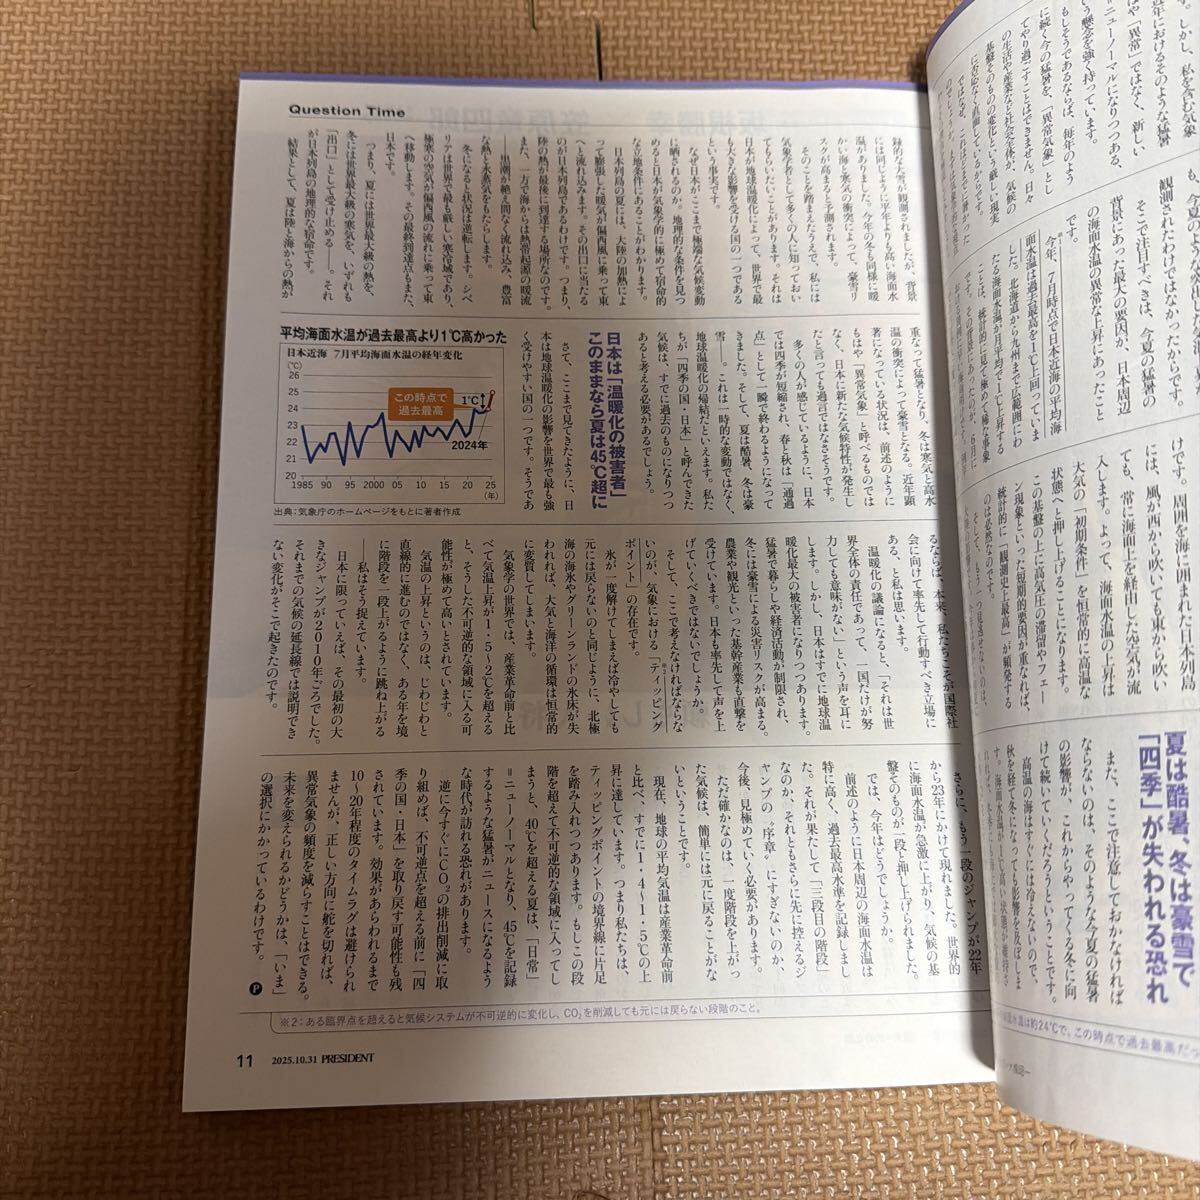 す。しかし、私を含む気象
近年におけるそのような猛暑
はや「異常」ではなく、新しい
=ニューノーマルになりつつある
う懸念を強く持っています。
もしそうであるならば、毎年のよう
に続く今の猛暑を、「異常気象」とし
てやり過ごすことはできません。日々
の生活や産業など社会全体が、気候の
基盤そのものの変化という厳しい現実
観測されたわけではなかったからです。
そこで注目すべきは、今夏の猛暑の
背景にあった最大の要因が、日本周辺
の海面水温の異常な上昇にあったこと
です。
今年、7月時点で日本近海の平均海
面水温は、過去最高を1℃上回っていま
した。北海道から九州まで広範囲にわ
たる海面水温が月平均で1℃上昇する
ことは、統計的に見て極めて稀な事象
けれど。四方を海に囲まれた日本列島
には、風が西から吹いても東から吹い
ても、常に海面上を経由した空気が流
入します。よって、海面水温の上昇は
大気の「初期条件」を恒常的に高温な
状態へと押し上げることになります。
この基盤の上に高気圧の滞留やフェー
ン現象といった短期的要因が重なれば、
統計的に「観測史上最高」が頻発する
のは必然なのです。
夏は酷暑、冬は豪雪で
「四季」が失われる恐れ
また、ここで注意しておかなければ
ならないのは、そのような今夏の猛暑
の影響が、これからやってくる冬に向
けて続いていくだろうということです。
高温の海はすぐには冷えないので、
秋を経て冬になっても影響を及ぼしま
水温は約24℃で、この時点で過去最高だっ
Question Time
録的な大雪が観測されましたが、背景
には同じように平年よりも高い海面水
温がありました。今年の冬も同様に暖
かい海と寒気の衝突によって、豪雪リ
スクが高まると予測されます。
そのことを踏まえたうえで、私には
気象学者として多くの人に知っておい
てもらいたいことがあります。それは
日本が地球温暖化によって、世界で最
も大きな影響を受ける国の一つである
という事実です。
なぜ日本がここまで極端な気候変動
に晒されるのか。地理的な条件を見つ
めると日本が気象的に極めて宿命的
な立地条件にあることがわかります。
日本列島の夏には、大陸の加熱によ
って膨張した暖気が偏西風に乗って東
へと流れ込みます。その出口に当たる
のが日本列島であるわけです。つまり、
陸の熱が最後に到達する場所なのです。
また、一方で海からは熱帯起源の暖流
――黒潮が絶え間なく流れ込み、豊富
な熱と水蒸気をもたらします。
冬になると状況は逆転します。シベ
リアは世界で最も厳しい寒冷域であり、
極寒の空気が偏西風の流れに乗って東
へ移動します。その最終到達点もまた、
日本です。
つまり、夏には世界最大級の熱を、
冬には世界最大級の寒気を、いずれも
「出口」として受け止める――。それ
が日本列島の地理的な宿命です。
結果として、夏は陸と海からの熱が
重なって猛暑となり、冬は寒気と高水
温の衝突によって豪雪となる。近年顕
著になっている状況は、前述のように
もはや「異常気象」と呼べるものでは
なく、日本に新たな気候特性が発生し
たと言っても過言ではなさそうです。
多くの人が感じているように、日本
では四季が短縮され、春と秋は「通過
点」として一瞬で終わるようになって
きました。そして、夏は酷暑、冬は豪
雪――。これは一時的な変動ではなく、
地球温暖化の帰結だといえます。私た
ちが「四季の国・日本」と呼んできた
気候は、すでに過去のものになりつつ
あると考える必要があるでしょう。
日本は「温暖化の被害者」
このままなら夏は45℃超に
さて、ここまで見てきたように、日
本は地球温暖化の影響を世界で最も強
く受けやすい国の一つです。そうであ
平均海面水温が過去最高より1℃高かった
日本近海 7月平均海面水温の経年変化
(℃)
26
25
24
23
22
21
20
この時点で
過去最高
1℃
2024年
1985 90 95 2000 05 10 15 20 25
(年)
出典:気象庁のホームページをもとに著者作成
るならば、本来、私たちこそが国際社
会に向けて率先して行動すべき立場に
ある、と私は思います。
温暖化の議論になると、「それは世
界全体の責任であって、一国だけが努
力しても意味がない」という声を耳に
します。しかし、日本はすでに地球温
暖化最大の被害者になりつつあります。
猛暑で暮らしや経済活動が制限され、
冬には豪雪による災害リスクが高まる。
農業や観光といった基幹産業も直撃を
受けています。日本も率先して声を上
げていくべきではないでしょうか。
そして、ここで考えなければならな
いのが、気象における「ティッピング
ポイント」の存在です。
※2
氷が一度解けてしまえば冷やしても
元には戻らないのと同じように、北極
海の海氷やグリーンランドの氷床が失
われれば、大気と海洋の循環は恒常的
に変質してしまいます。
気象学の世界では、産業革命前と比
べて気温上昇が1・5〜2℃を超える
と、そうした不可逆的な領域に入る可
能性が極めて高いとされています。
気温の上昇というのは、じわじわと
直線的に進むのではなく、ある年を境
に階段を一段上がるように跳ね上がる
――私はそう捉えています。
日本に限っていえば、その最初の大
きなジャンプが2010年ごろでした。
それまでの気候の延長線では説明でき
ない変化がそこで起きたのです。
さらに、もう一段のジャンプが22年
から23年にかけて現れました。世界的
に海面水温が急激に上がり、気候の基
盤そのものが一段と押し上げられました。
では、今年はどうでしょうか。
前述のように日本周辺の海面水温は
特に高く、過去最高水準を記録しまし
た。それが果たして「三段目の階段」
なのか、それともさらに先に控えるジ
ャンプの〝序章〟にすぎないのか、
今後、見極めていく必要があります。
ただ確かなのは、一度階段を上がっ
た気候は、簡単には元に戻ることがな
いということです。
現在、地球の平均気温は産業革命前
と比べ、すでに1・4〜1・5℃の上
昇に達しています。つまり私たちは、
ティッピングポイントの境界線に片足
を踏み入れつつあります。もしこの段
階を超えて不可逆的な領域に入ってし
まうと、40℃を超える夏は、「日常」
=ニューノーマルとなり、45℃を記録
するような猛暑がニュースになるよう
な時代が訪れる恐れがあります。
逆に今すぐにCO₂の排出削減に取
り組めば、不可逆点を超える前に「四
季の国・日本」を取り戻す可能性も残
されています。効果があらわれるまで
10〜20年程度のタイムラグは避けられ
ませんが、正しい方向に舵を切れば、
異常気象の頻度を減らすことはできる。
未来を変えられるかどうかは、「いま」
の選択にかかっているわけです。
P
※2:ある臨界点を超えると気候システムが不可逆的に変化し、CO₂を削減しても元には戻らない段階のこと。
11
2025.10.31 PRESIDENT